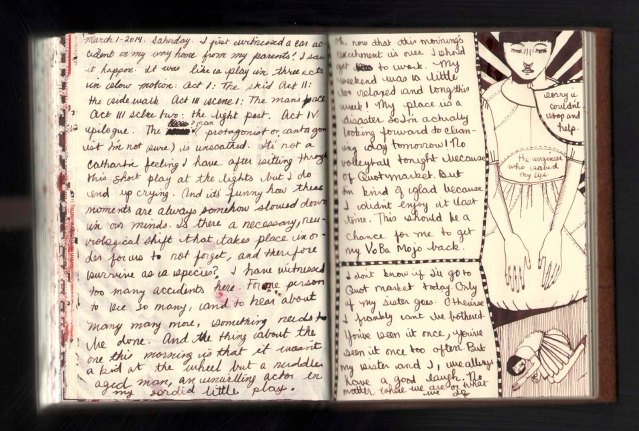 March 1-2014. Saturday. I just witnessed a car ac
cident on my way home from my parents! I saw
it happen. It was like a play in three acts
in slow motion. Act I: The skid Act II:
the sidewalk. Act III scene 1: The man's face
Act III scene two: the light post. Act IV:
epilogue. The man (protagonist or antagon
ist I'm not sure) is unscathed. It's not a
cathartic feeling I have after sitting through
this short play at the lights but I do
end up crying. And it's funny how these
moments are always somehow slowed down
in our minds. Is there a necessary, neu-
rological shift that takes place in or-
der for us to not forget, and therefore
survive as a species? I have witnessed
too many accidents here. For one person
to see so many, and to hear about
many many more, something needs to
be done. And the thing about the
one this morning is that it wasn't
a kid at the wheel but a middle
aged man, an unwilling actor in
my sordid little play.
Ok, now that this morning's
excitement is over I should
get to work. My
weekend was a little
too relaxed and long this
week! My place is a
disaster so I'm actually
looking forward to clean-
ing day tomorrow! No
volleyball tonight because
of Quotmarket. But
I'm kind of glad because
I didn't enjoy it last
time. This should be a
chance for me to get
my VoBa Mojo back.
I don't know if I'll go to
Quot market today. Only
if my sister goes. Otherwise
I frankly can't be bothered.
You've seen it once, you've
seen it once too often! But
my sister and I, we always
have a good laugh. No
matter where we are or what
we do
sorry i
couldn't
stop and
help.
the engineer
who
my life